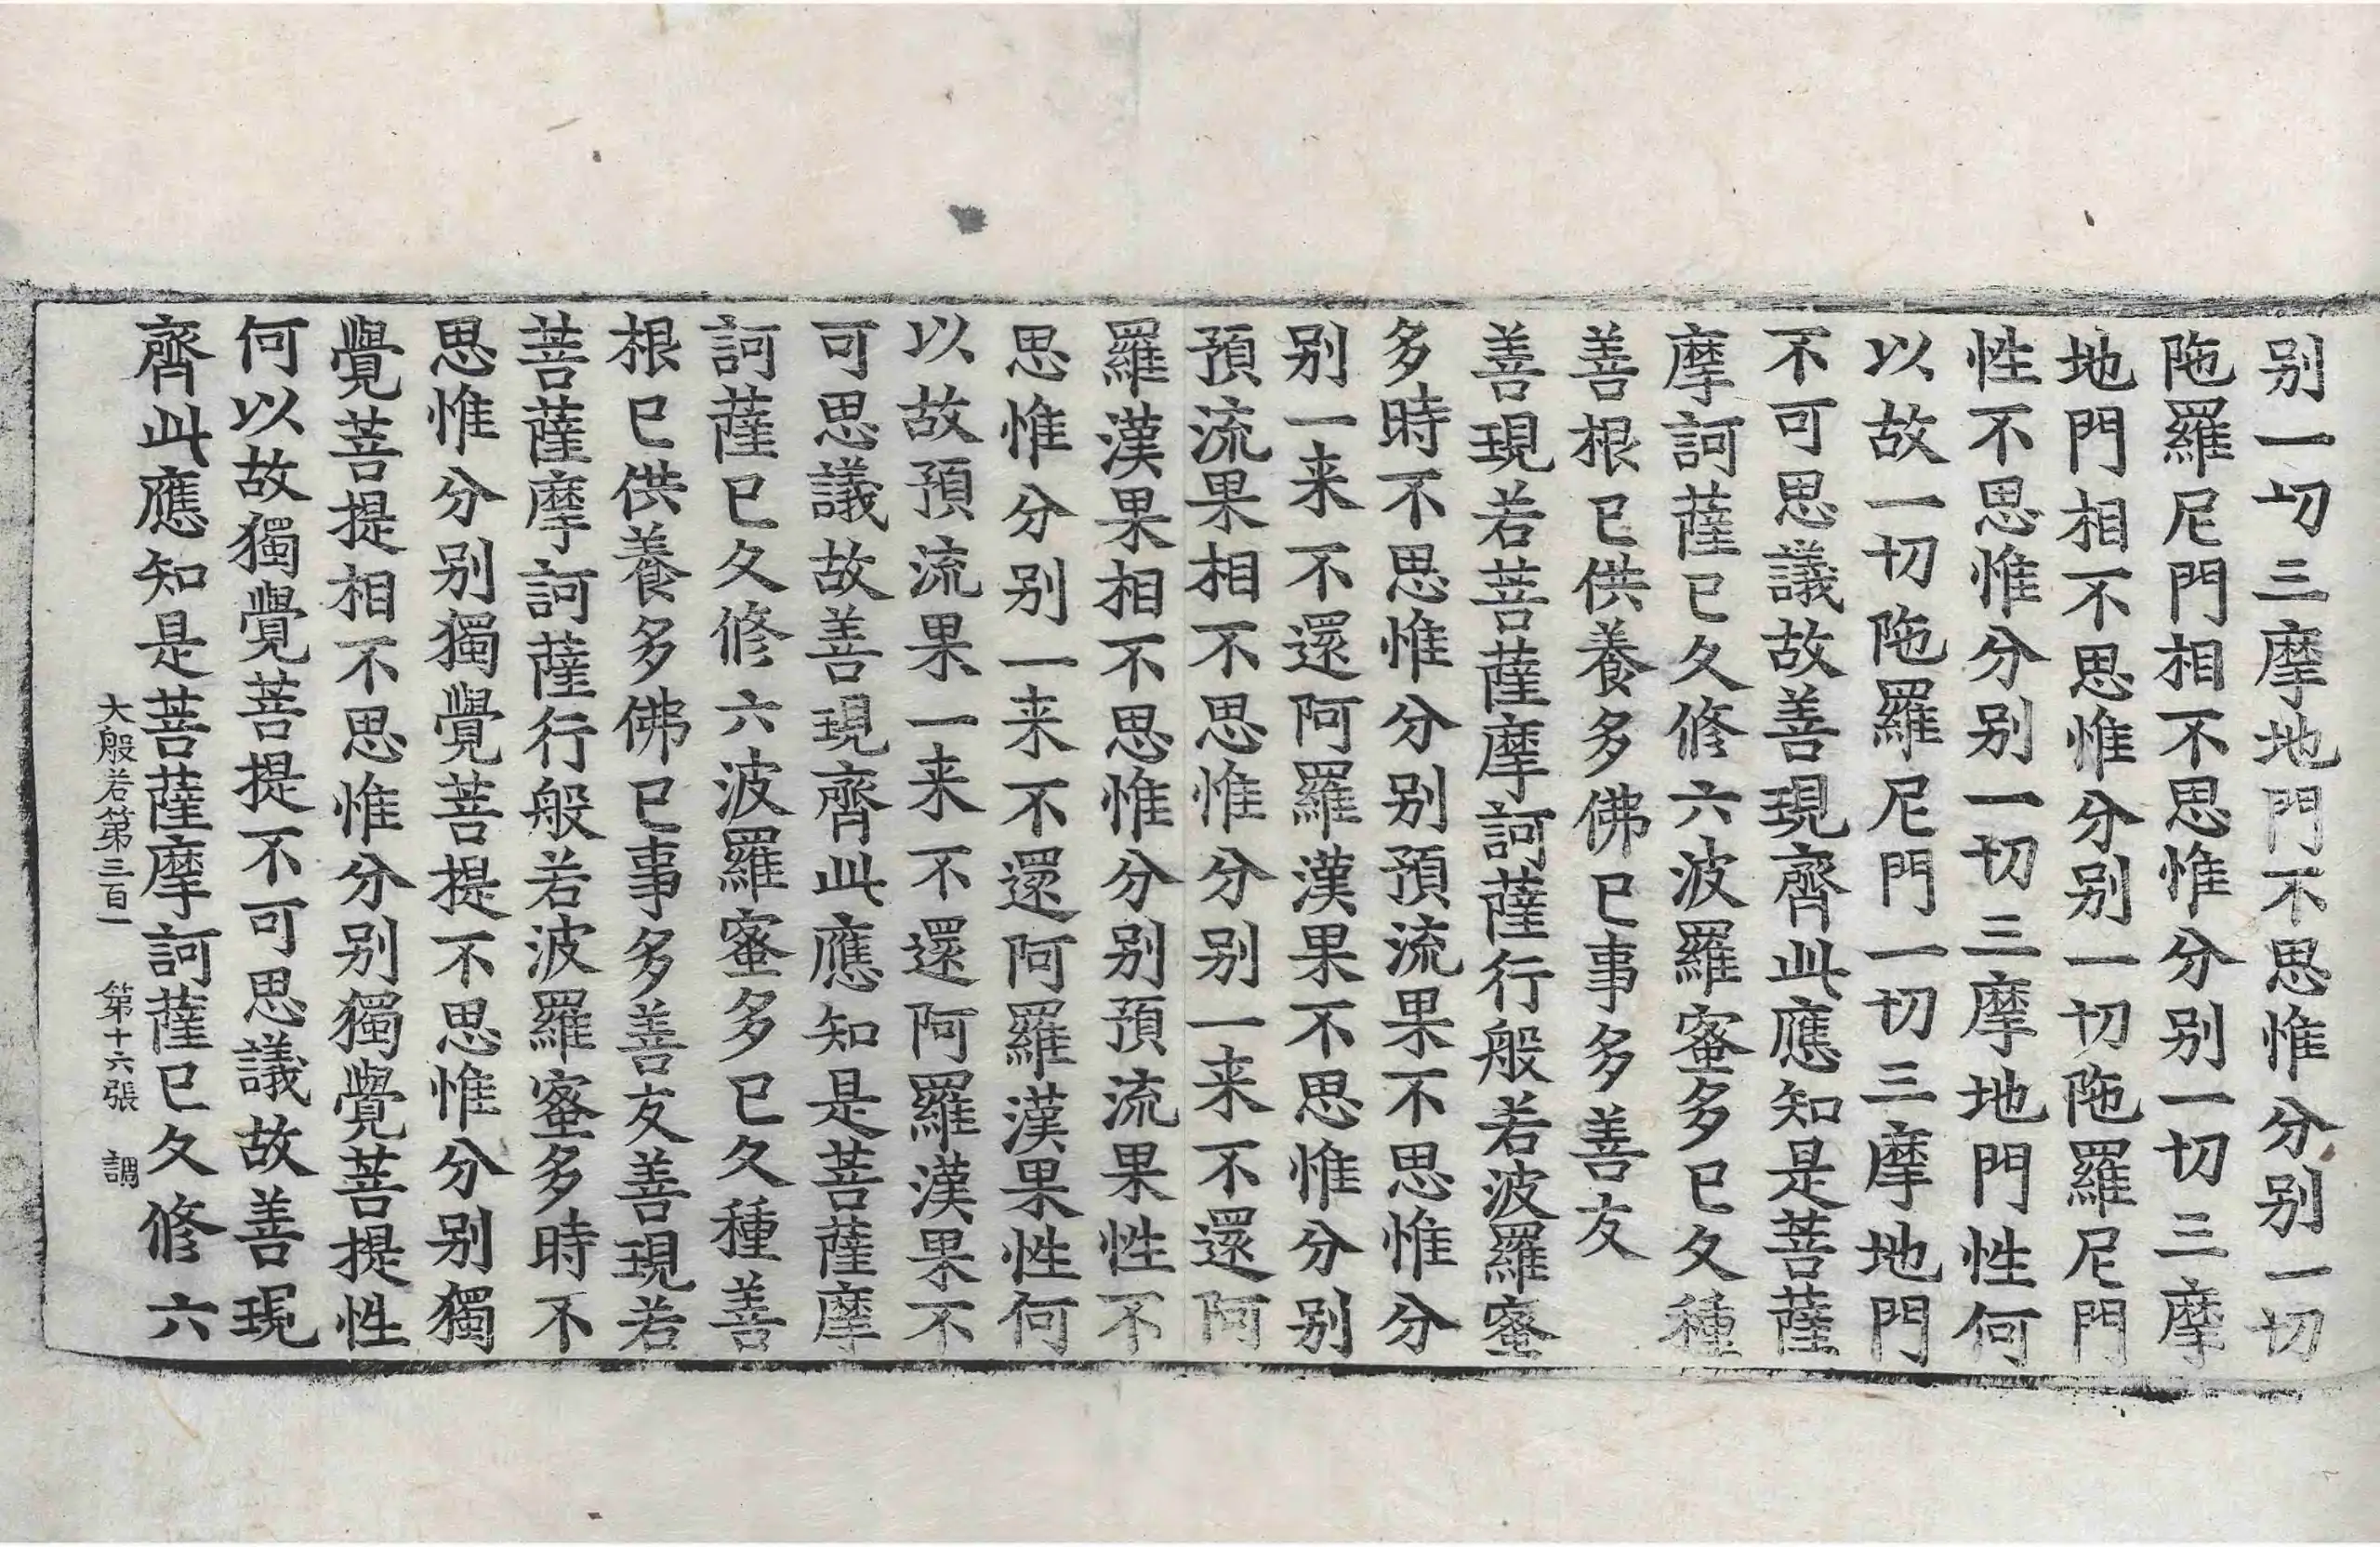 别一切三摩地門不思惟分别一切
陁羅尼門相不思惟分别一切三摩
地門相不思惟分别一切陁羅尼門
性不思惟分别一切三摩地門性何
以故一切陁羅尼門一切三摩地門
不可思議故善現齊此應知是菩薩
摩訶薩已久修六波羅蜜多已久種
善根已供養多佛已事多善友
善現若菩薩摩訶薩行般若波羅蜜
多時不思惟分别預流果不思惟分
别一来不還阿羅漢果不思惟分别
預流果相不思惟分别一来不還阿
羅漢果相不思惟分别預流果性不
思惟分别一来不還阿羅漢果性何
以故預流果一来不還阿羅漢果不
可思議故善現齊此應知是菩薩摩
訶薩已久修六波羅蜜多已久種善
根已供養多佛已事多善友善現若
菩薩摩訶薩行般若波羅蜜多時不
思惟分别獨覺菩提不思惟分别獨
覺菩提相不思惟分别獨覺菩提性
何以故獨覺菩提不可思議故善現
齊此應知是菩薩摩訶薩已久修六
大般若第三百一 第十六張 調